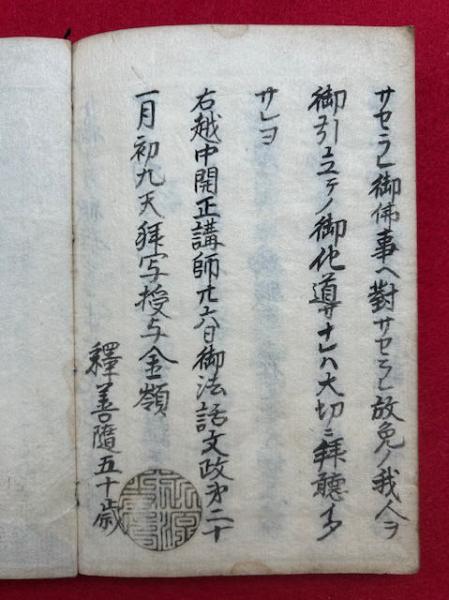 サセラレ御佛事ヘ對サセラレ放免ノ我人ヲ
御引立テノ御化導サナレハ大切ニ拜聽イタ
サレヨ
右越中開正講師廿六日御法話文政第二十
一月初九天拜写授与金嶺
釋善隨五十歲